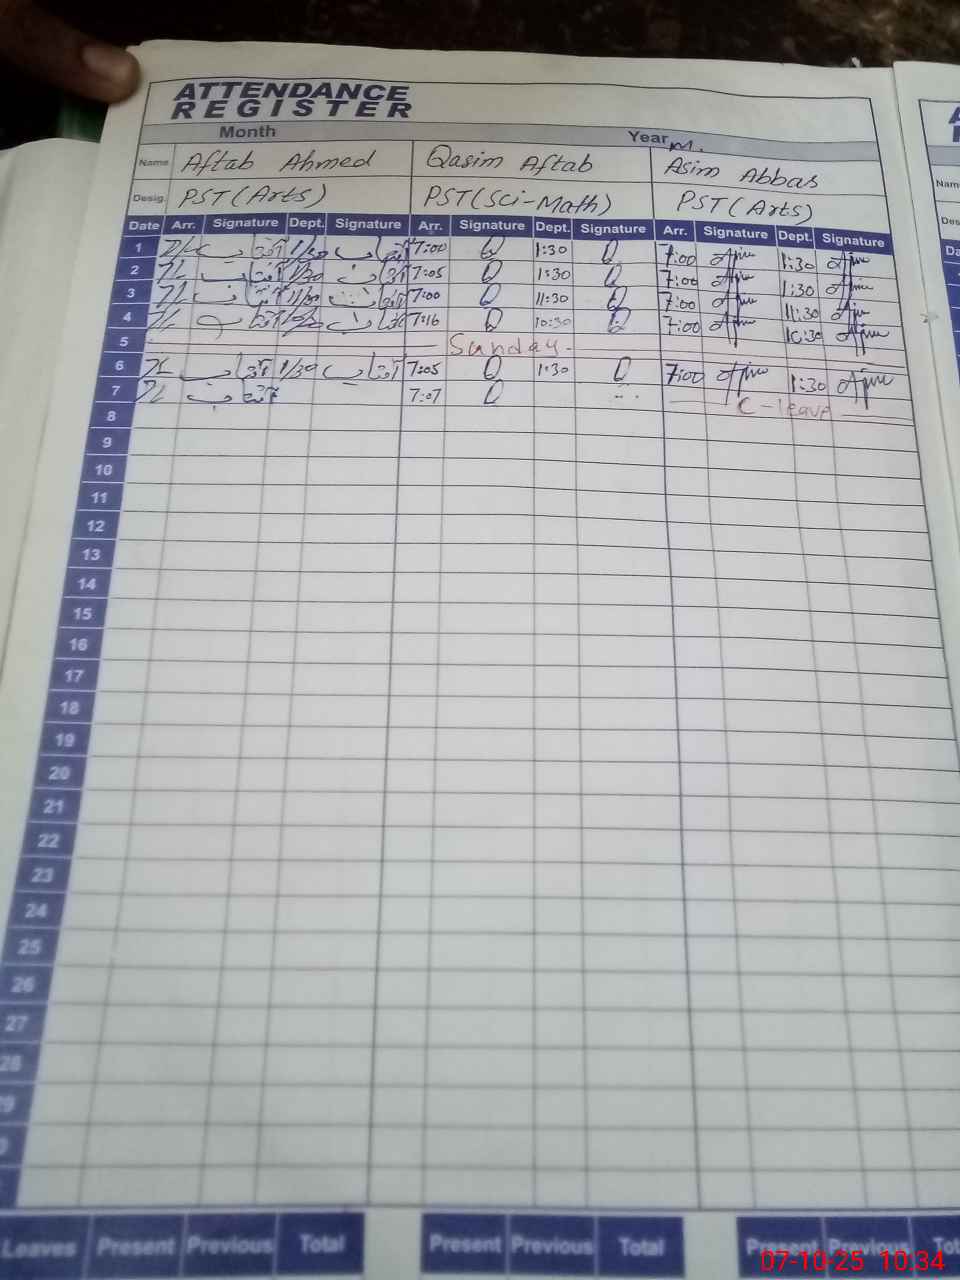 ATTENDANCE
REGISTER
Month Year
Name Aftab Ahmed Qasim Aftab M. Asim Abbas
Desig. PST (Arts) PST (Sci-Math) PST (Arts)
Date Arr. Signature Dept. Signature Arr. Signature Dept. Signature Arr. Signature Dept. Signature
1 آفتاب 1/30 آفتاب 7:00 1:30 7:00 1:30
2 آفتاب 1/30 آفتاب 7:05 1:30 7:00 1:30
3 آفتاب 11/30 آفتاب 7:00 11:30 7:00 11:30
4 آفتاب آفتاب 7:16 10:30 7:00 10:30
5 Sunday
6 آفتاب 1/30 آفتاب 7:05 1:30 7:00 1:30
7 آفتاب 7:07 C-leave
8
9
10
11
12
13
14
15
16
17
18
19
20
21
22
23
24
25
26
27
28
Leaves Present Previous Total Present Previous Total Present Previous Total
07-10-25 10:34